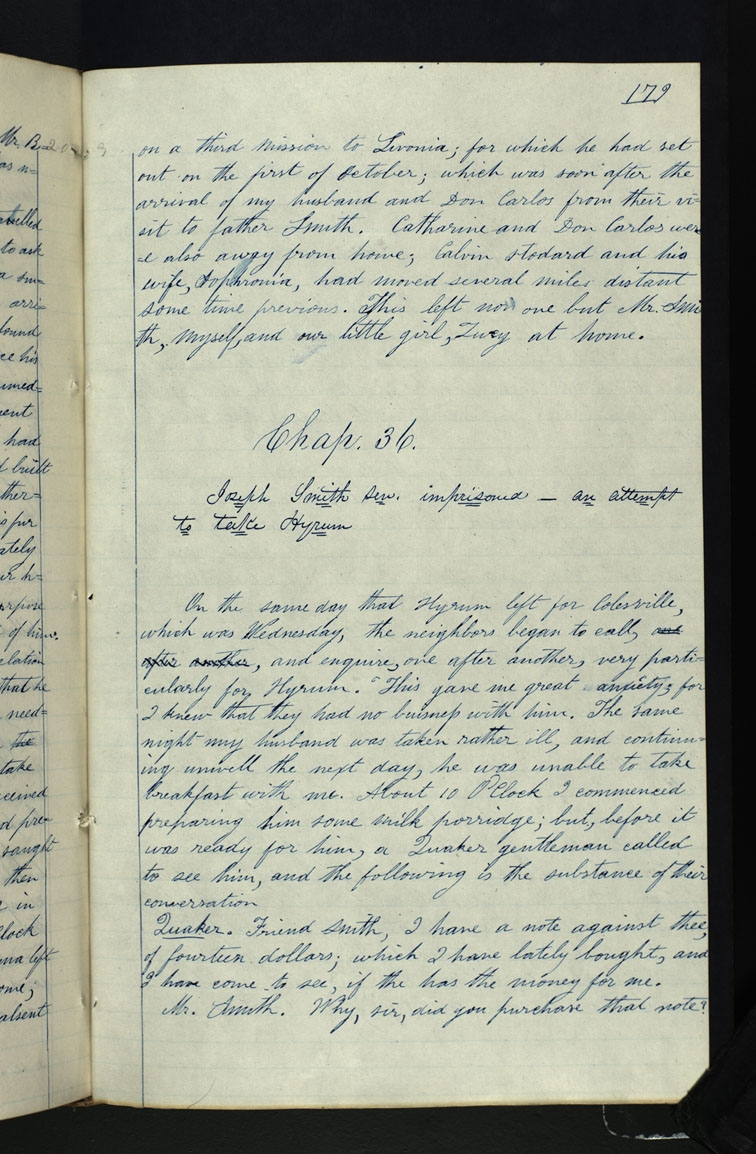 179
on a third mission to Livonia; for which he had set
out on the first of October; which was soon after the
arrival of my husband and Don Carlos from their vi=
sit to father Smith. Catharine and Don Carlos wer
=e also away from home; Calvin Stodard and his
wife, Sophronia, had moved several miles distant
some time previous. This left no one but Mr. Smi
th, myself, and our little girl, Lucy at home.
Chap. 36.
Joseph Smith sen. imprisoned — an attempt
to take Hyrum
On the same day that Hyrum left for Colesville,
which was Wednesday, the neighbors began to call, one
after another, and enquire, one after another, very parti=
cularly for Hyrum. This gave me great anxiety; for
I knew that they had no buisness with him. The same
night my husband was taken rather ill, and continu=
ing unwell the next day, he was unable to take
breakfast with me. About 10 O'Clock I commenced
preparing him some milk porridge; but, before it
was ready for him, a Quaker gentleman called
to see him, and the following is the substance of their
conversation
Quaker. Friend Smith, I have a note against thee,
of fourteen dollars; which I have lately bought, and
I have come to see, if the has the money for me.
Mr. Smith. Why, sir, did you purchase that note?
Mr. B
as n=
to ask
arri=
found
ce his
had
built
ther=
ately
of him.
elation
that he
need=
the
take
ceived
d pre=
sought
then
in
clock
left
ome;
absent